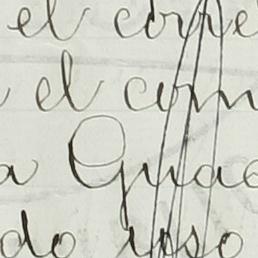 el corre
el com
a Guac
do uso